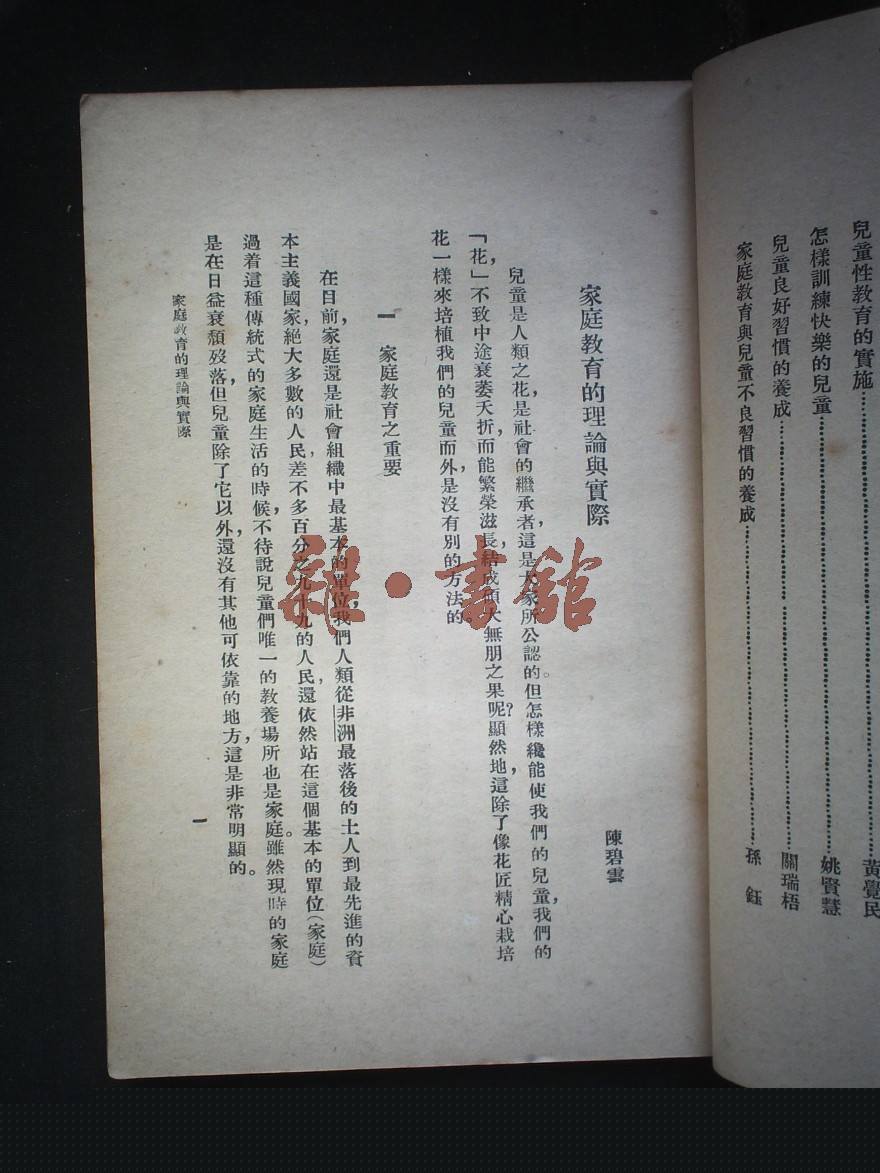 兒童性教育的實施……………………黃覺民
怎樣訓練快樂的兒童……………………姚賢慧
兒童良好習慣的養成……………………關瑞梧
家庭教育與兒童不良習慣的養成……………………孫鈺
家庭教育的理論與實際
陳碧雲
兒童是人類之花，是社會的繼承者，這是大家所公認的。但怎樣纔能使我們的兒童，我們的
「花，」不致中途衰萎夭折，而能繁榮滋長，結成碩大無朋之果呢？顯然地，這除了像花匠精心栽培
花一樣來培植我們的兒童而外，是沒有別的方法的。
一 家庭教育之重要
在目前，家庭還是社會組織中最基本的單位，我們人類從非洲最落後的土人到最先進的資
本主義國家，絕大多數的人民，差不多百分之九十九的人民，還依然站在這個基本的單位（家庭）
過着這種傳統式的家庭生活的時候，不待說兒童們唯一的教養場所也是家庭。雖然現時的家庭
是在日益衰頹歿落，但兒童除了它以外，還沒有其他可依靠的地方，這是非常明顯的。
家庭教育的理論與實際
一
雜·書館